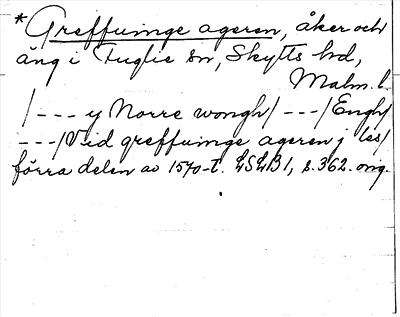 * Greffuinge ageren, åker och
äng i Fuglie sn, Skytts hd,
Malm. l.
/--- y Norre wongh/---/Engh/
---/Vid greffuinge ageren j les/
förra delen av 1570-t. LSLB 1, s. 362. orig.